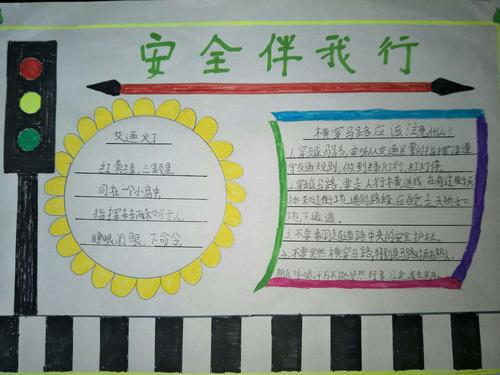 安全伴我行
交通灯
红黄绿,三颗星,
同在一个小房中,
指挥车辆和行人,
睁眼闭眼,下命令。
横穿马路应该注意什么?
1.穿越马路,要听从交通民警的指挥,要遵
守交通规则,做到绿灯行,红灯停。
2.穿越马路,要走人行横道线,在有过街天
桥和过街地道的路段,应自觉走天桥和
地下通道。
3.不要翻越道路中央的安全护栏。
4.不要突然横穿马路,特别是马路对面有熟人、